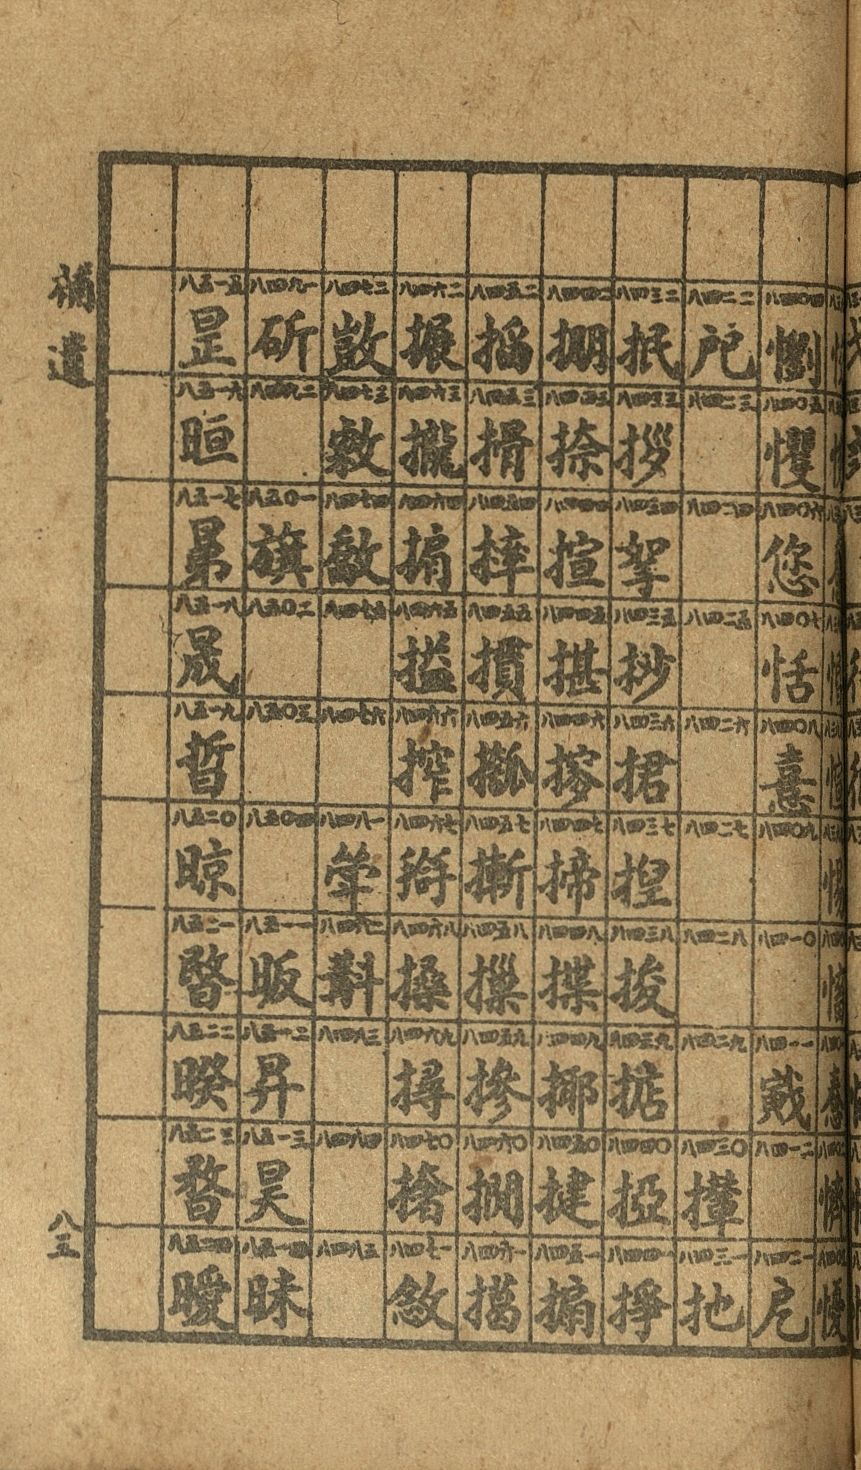 補遺
八四〇四 懰
八四〇五
八四〇六 您
八四〇七 恬
八四〇八 憙
八四〇九
八四一〇
八四一一
八四一二
八四二一 戹
八四二二 戺
八四二三
八四二四
八四二五
八四二六
八四二七
八四二八
八四二九
八四三〇 攆
八四三一 扡
八四三二 抿
八四三三 拶
八四三四 挐
八四三五 挱
八四三六 捃
八四三七
八四三八 捘
八四三九 掂
八四四〇 掗
八四四一 掙
八四四二 掤
八四四三 捺
八四四四 揎
八四四五 揕
八四四六 摎
八四四七 揥
八四四八 揲
八四四九 揶
八四五〇 揵
八四五一 搧
八四五二 搯
八四五三 搰
八四五四 摔
八四五五 摜
八四五六
八四五七 摲
八四五八 摷
八四五九 摻
八四六〇 撊
八四六一
八四六二 搌
八四六三 攏
八四六四 掮
八四六五 搤
八四六六 搾
八四六七 搿
八四六八 搡
八四六九 撏
八四七〇
八四七一 敜
八四七二 敳
八四七三 敹
八四七四
八四七五
八四七六
八四八一 斝
八四八二 斠
八四八三
八四八四
八四八五
八四九一
八四九二
八五〇一 旟
八五〇二
八五〇三
八五〇四
八五一一 昄
八五一二 昇
八五一三 昊
八五一四 昧
八五一五 昰
八五一六 晅
八五一七 晜
八五一八 晟
八五一九 晢
八五二〇 晾
八五二一 暋
八五二二 暌
八五二三
八五二四 曖
八五